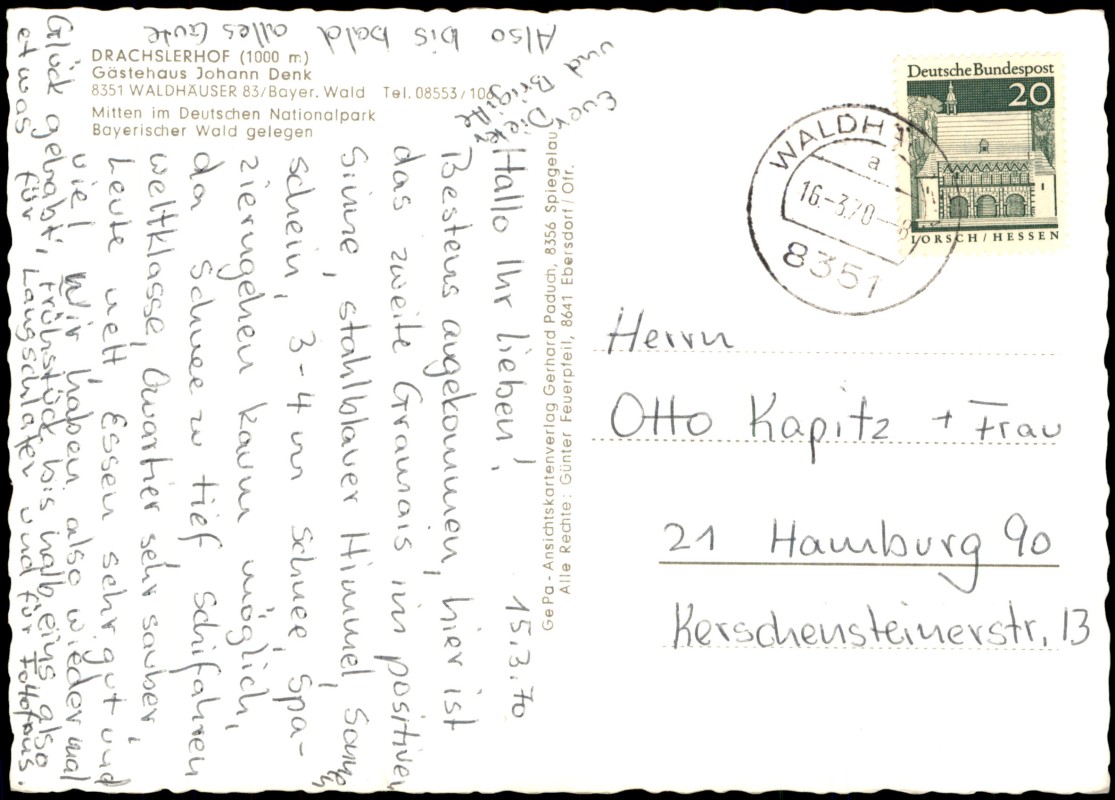 DRACHSLERHOF (1000 m)
Gästehaus Johann Denk
8351 WALDHÄUSER 83/Bayer. Wald Tel. 08553/108
Mitten im Deutschen Nationalpark
Bayerischer Wald gelegen
15.3.70
Hallo Ihr lieben!
Bestens angekommen, hier ist
das zweite Gramais im positiven
Sinne, stahlblauer Himmel, Sonnen
schein, 3-4 m Schnee, Spa-
zierngehen kaum möglich,
da Schnee zu tief, Schifahren
weltklasse, Quartier sehr sauber,
Leute nett, Essen sehr gut und
viel. Wir haben also wieder mal
Glück gehabt, Frühstück bis halb eins also
etwas für Langschläfer und für
Also bis bald alles Gute
Euer Dieter
und Brigitte
GePa-Ansichtskartenverlag Gerhard Paduch, 8356 Spiegelau
Alle Rechte: Günter Feuerpfeil, 8641 Ebersdorf/Ofr.
Deutsche Bundespost
20
LORSCH/HESSEN
WALDHÄ
a
16.-3.70.-8
8351
Herrn
Otto Kapitz + Frau
21 Hamburg 90
Kerschensteinerstr. 13